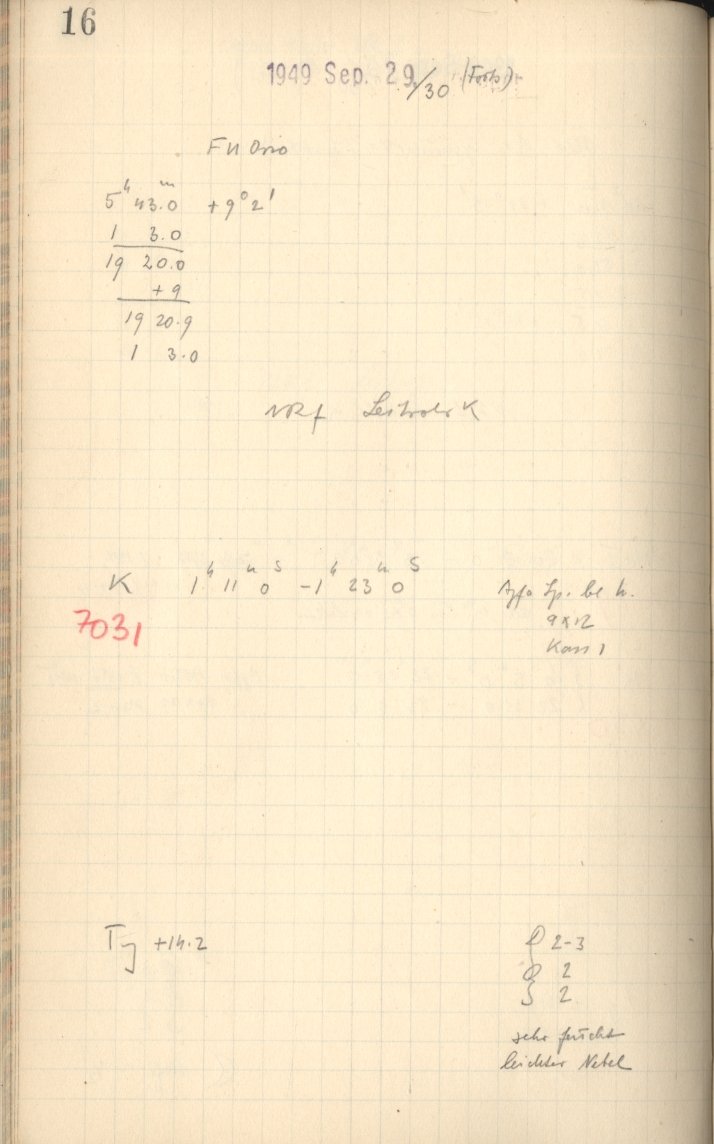 16
1949 Sep. 29/30 (Forts.)
FU Orio
5ʰ 43.0ᵐ +9° 2'
1 3.0
19 20.0
+ 9
19 20.9
1 3.0
Leitrohr K
K 1ʰ 11ᵐ 0ˢ -1ʰ 23ᵐ 0ˢ
7031
Agfa Sp. bl h.
9x12
Kass 1
T +14.2
2-3
2
2
sehr feucht
leichter Nebel